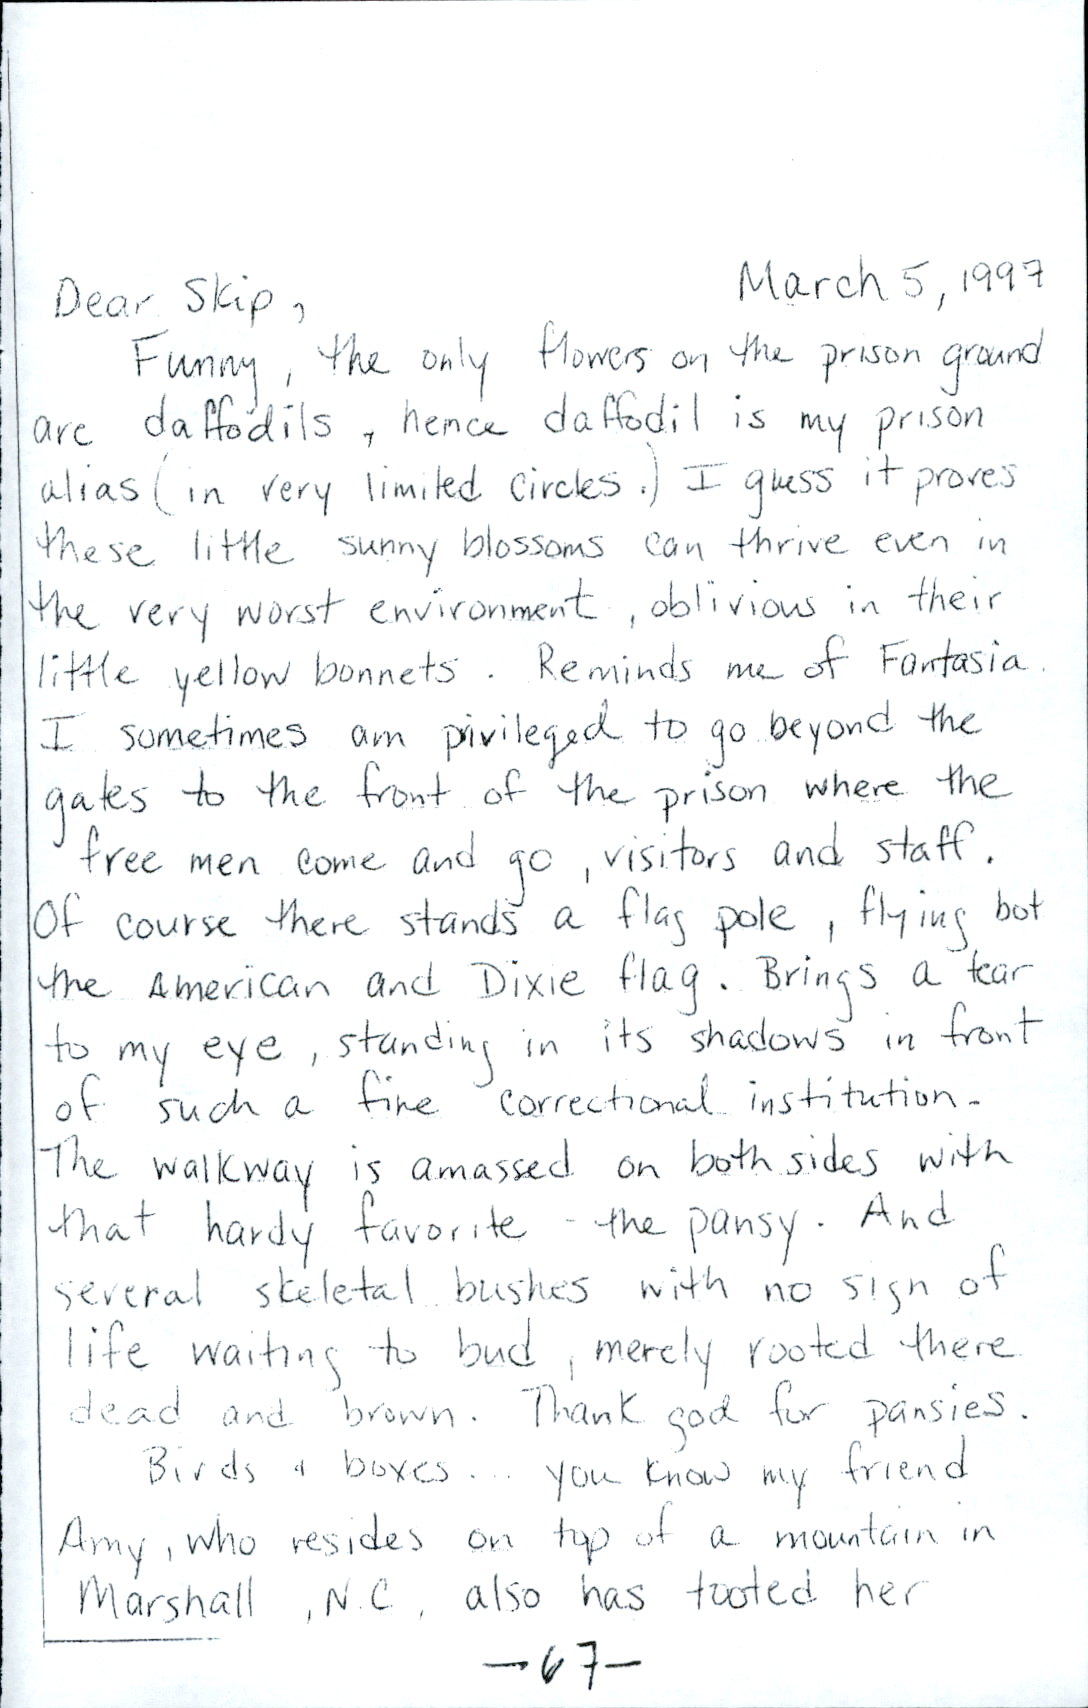 March 5, 1997
Dear Skip,
Funny, the only flowers on the prison ground
are daffodils, hence daffodil is my prison
alias (in very limited circles.) I guess it proves
these little sunny blossoms can thrive even in
the very worst environment, oblivious in their
little yellow bonnets. Reminds me of Fantasia.
I sometimes am privileged to go beyond the
gates to the front of the prison where the
free men come and go, visitors and staff.
Of course there stands a flag pole, flying bot
the American and Dixie flag. Brings a tear
to my eye, standing in its shadows in front
of such a fine correctional institution.
The walkway is amassed on both sides with
that hardy favorite - the pansy. And
several skeletal bushes with no sign of
life waiting to bud, merely rooted there
dead and brown. Thank god for pansies.
Birds & boxes... you know my friend
Amy, who resides on top of a mountain in
Marshall, N.C, also has tooted her
-67-